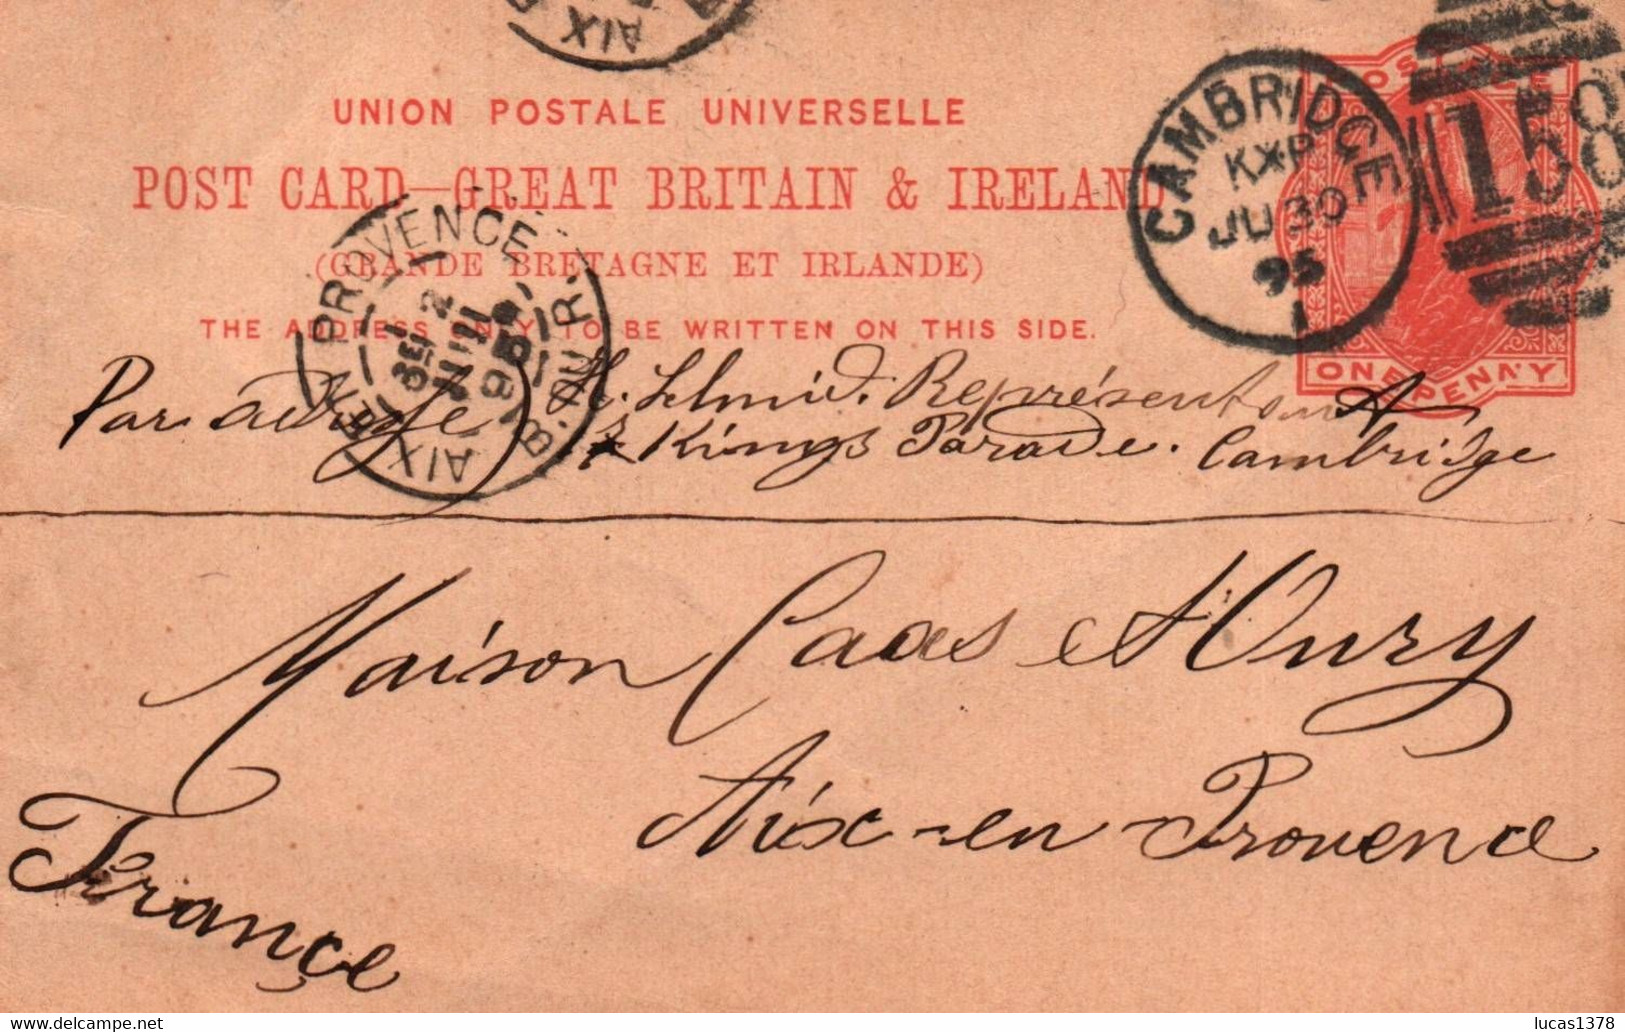 AIX
UNION POSTALE UNIVERSELLE
POST CARD—GREAT BRITAIN & IRELAND
(GRANDE BRETAGNE ET IRLANDE)
THE ADDRESS ONLY TO BE WRITTEN ON THIS SIDE.
CAMBRIDGE
JU 30
95
1
158
POSTAGE
ONE PENNY
AIX EN PROVENCE
B. DU R.
2
95
Par
Kings Parade. Cambridge
Maison
Aix-en-Provence
France
lucas1378